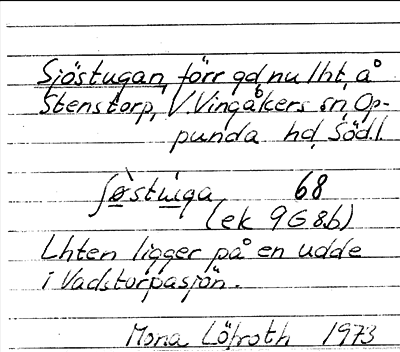 Sjöstugan, förr gd, nu lht, å
Stenstorp, V. Vingåkers sn, Op-
punda hd, Södl.
68
(ek 9G 8b)
Lhten ligger på en udde
i Vadstorpasjön.
Mona Löfroth 1973